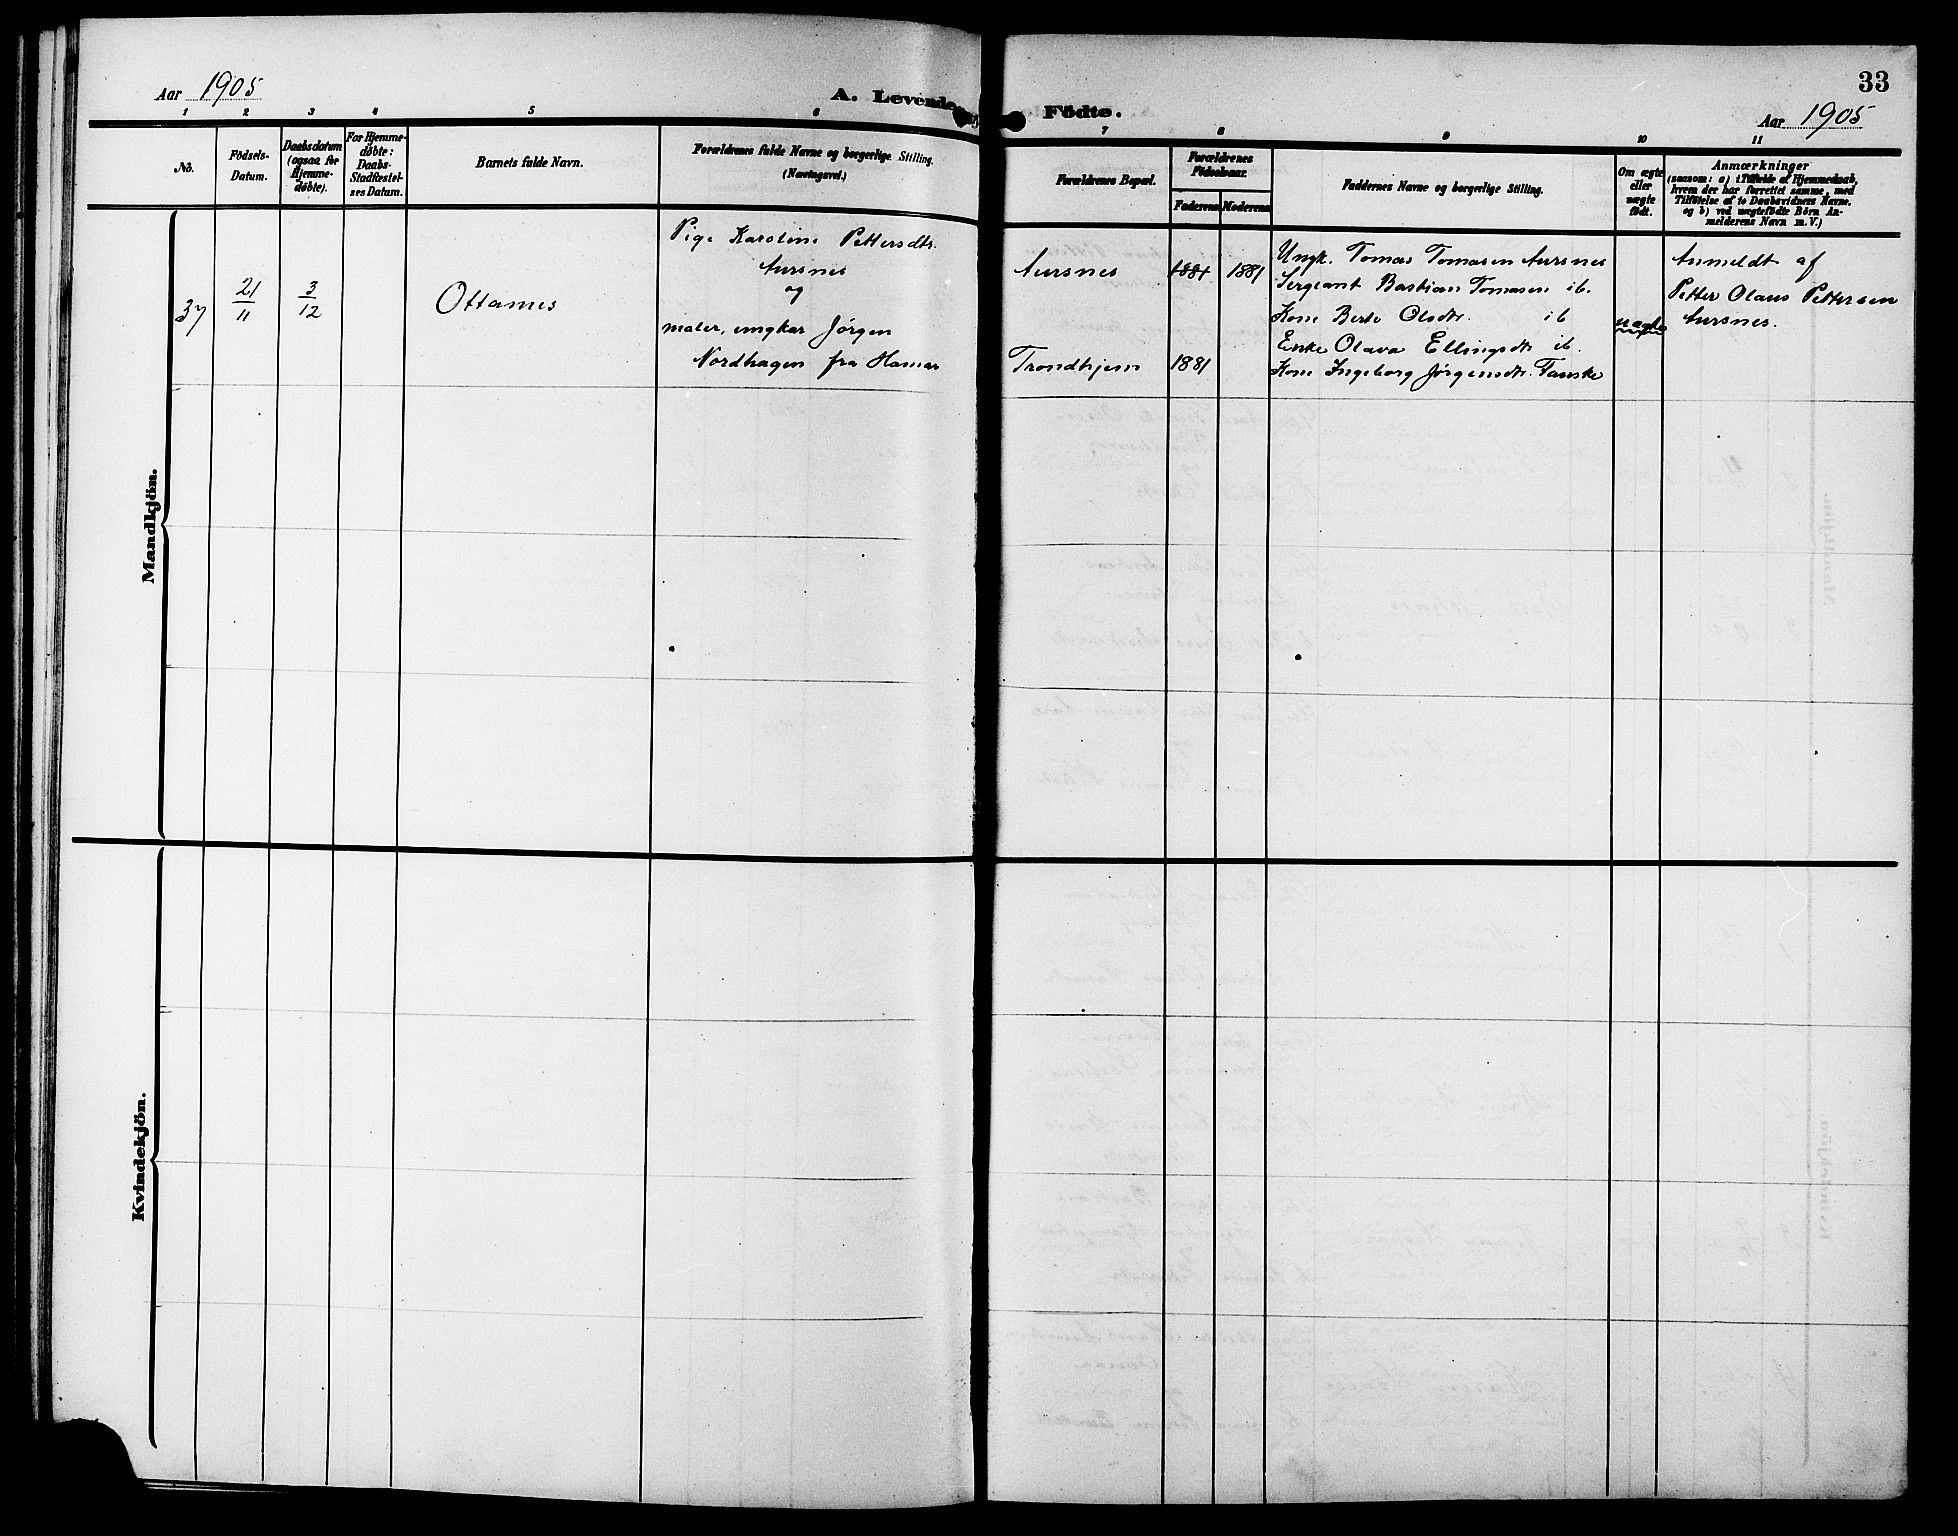 Aar 1905
A. Levende
1 2 3 4 5 6
No.
Födsels-
Datum.
Daabsdatum
(ogsaa for
Hjemme-
döbte).
For Hjemme-
döbte:
Daabs-
Stadfæstel-
ses Datum.
Barnets fulde Navn.
Forældrenes fulde Navne og borgerlige Stilling.
(Næringsvei.)
Mandkjön.
37
21/11
3/12
Ottamus
Pige Karoline Pettersdtr.
Aursnes
og
maler, ungkar Jørgen
Nordhagen fra Hamar
Kvindekjön.
33
Födte.
Aar 1905
7 8 9 10 11
Forældrenes Bopæl.
Forældrenes
Födselsaar.
Faderens
Moderens
Faddernes Navne og borgerlige Stilling.
Om ægte
eller
uægte
födt.
Anmærkninger
(saasom: a) i Tilfælde af Hjemmedaab,
hvem der har forrettet samme, med
Tilföielse af to Daabsvidners Navne.
og b) ved uægtefödte Börn An-
melderens Navn m. V.)
Aursnes
1881
1881
Trondhjem
1881
Ungk. Tomas Tomasen Aursnes
Sergeant Bastian Tomasen ib.
Kone Berte Olsdtr. ib
Enke Olava Ellingsdtr ib.
Kone Ingeborg Jørgensdtr. Tauske
uægte
Anmeldt af
Petter Olaus Pettersen
Aursnes.